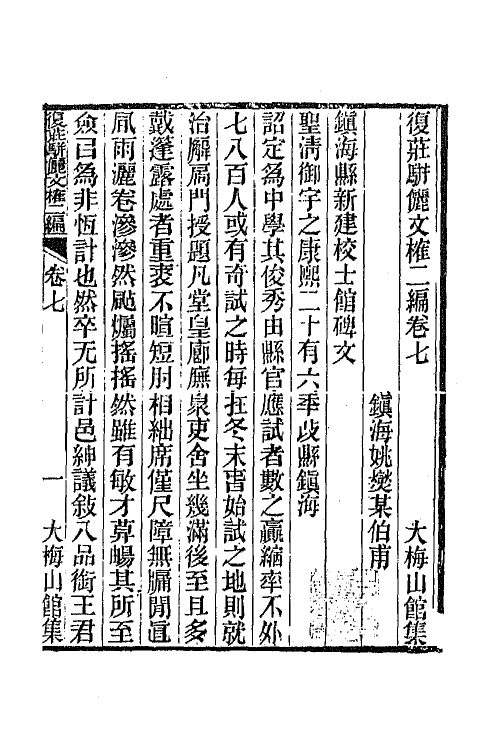 復莊駢儷文榷二編卷七　大梅山館集
鎮海姚燮某伯甫
鎮海縣新建校士館碑文
聖淸御宇之康熙二十有六秊攺縣鎮海
詔定為中學其俊秀由縣官應試者數之羸縮率不外
七八百人或有奇試之時每在冬末旾始試之地則就
治廨扃門授題凡堂皇廊廡泉吏舍坐幾滿後至且多
戴蓬露處者重裘不暄短肘相絀席僅尺障無牖閒寘
凮雨灑卷滲滲然颭爥搖搖然雖有敏才莫暢其所至
僉曰為非恆計也然卒无所計邑紳議敍八品銜王君
復莊駢儷文榷二編　卷七　一　大梅山館集